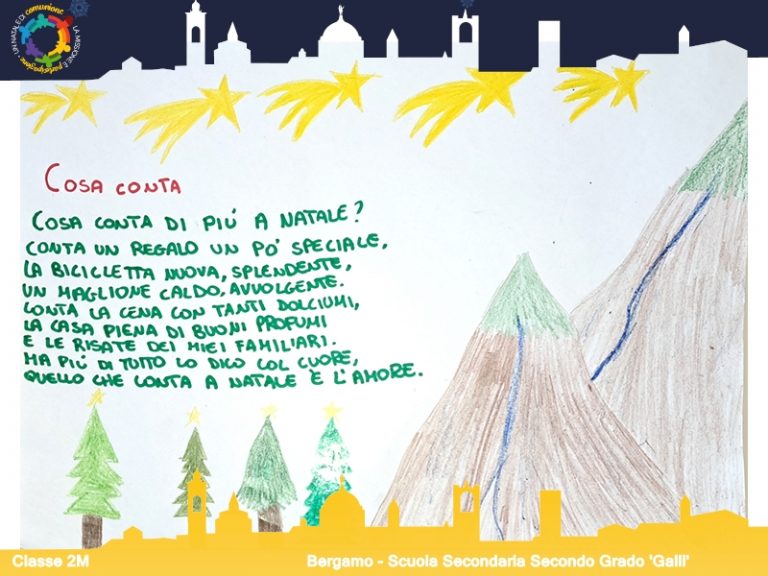 UN NATALE DI comunione
LA MISSIONE È partecipazione
COSA CONTA
COSA CONTA DI PIÚ A NATALE?
CONTA UN REGALO UN PO' SPECIALE,
LA BICICLETTA NUOVA, SPLENDENTE,
UN MAGLIONE CALDO, AVVOLGENTE.
CONTA LA CENA CON TANTI DOLCIUMI,
LA CASA PIENA DI BUONI PROFUMI
E LE RISATE DEI MIEI FAMILIARI.
MA PIÚ DI TUTTO LO DICO COL CUORE,
QUELLO CHE CONTA A NATALE È L'AMORE.
Classe 2M
Bergamo - Scuola Secondaria Secondo Grado 'Galli'